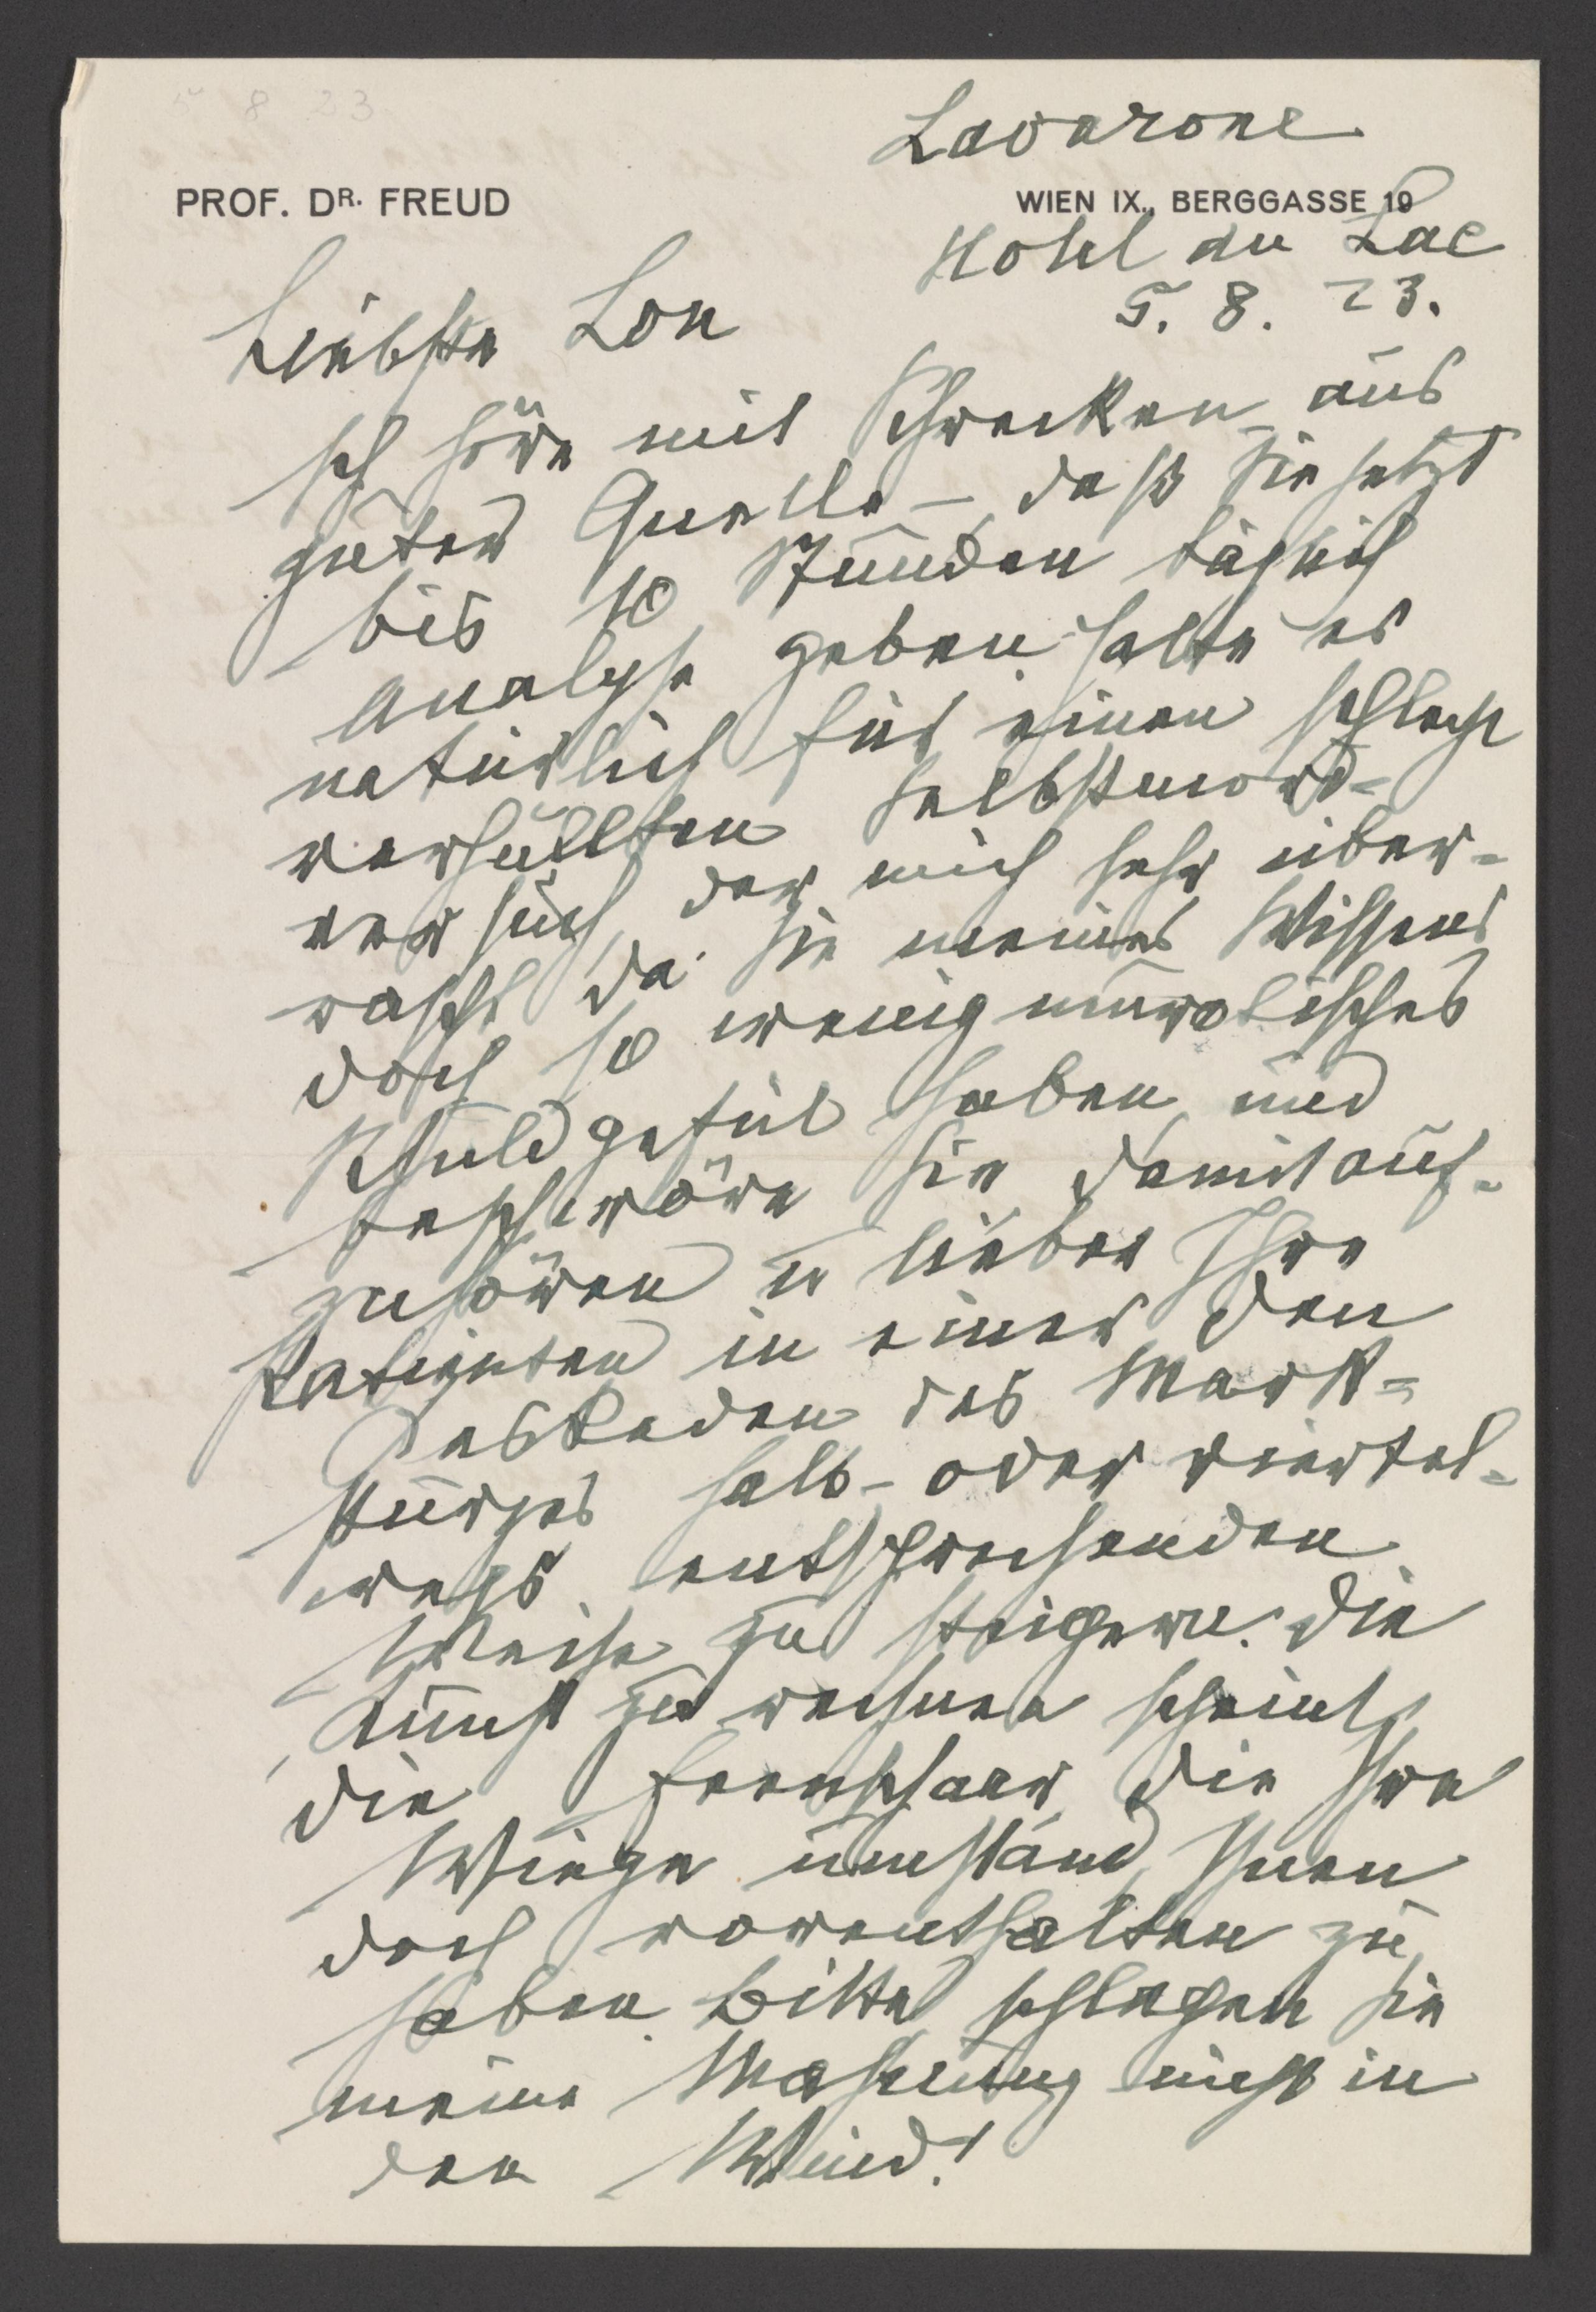 5 8 23
Lavarone
PROF. DR. FREUD
WIEN IX., BERGGASSE 19
Hotel du Lac
5. 8. 23.
Liebste Lou
Ich höre mit Schrecken – aus
guter Quelle – daß Sie jetzt
bis 10 Stunden täglich
Analyse geben. Halte es
natürlich für einen schlecht
verhüllten Selbstmord-
versuch, der mich sehr über-
rascht, da Sie meines Wissens
doch so wenig neurotisches
Schuldgefül haben, und
beschwöre Sie damit auf-
zuhören u lieber Ihre
Patienten in einer den
Kaskaden des Mark-
sturzes halb- oder viertel-
wegs entsprechenden
Weise zu steigern. Die
Kunst zu rechnen scheint
die Feenschaar, die Ihre
Wiege umstand, Ihnen
doch vorenthalten zu
haben. Bitte schlagen Sie
meine Mahnung nicht in
den Wind!